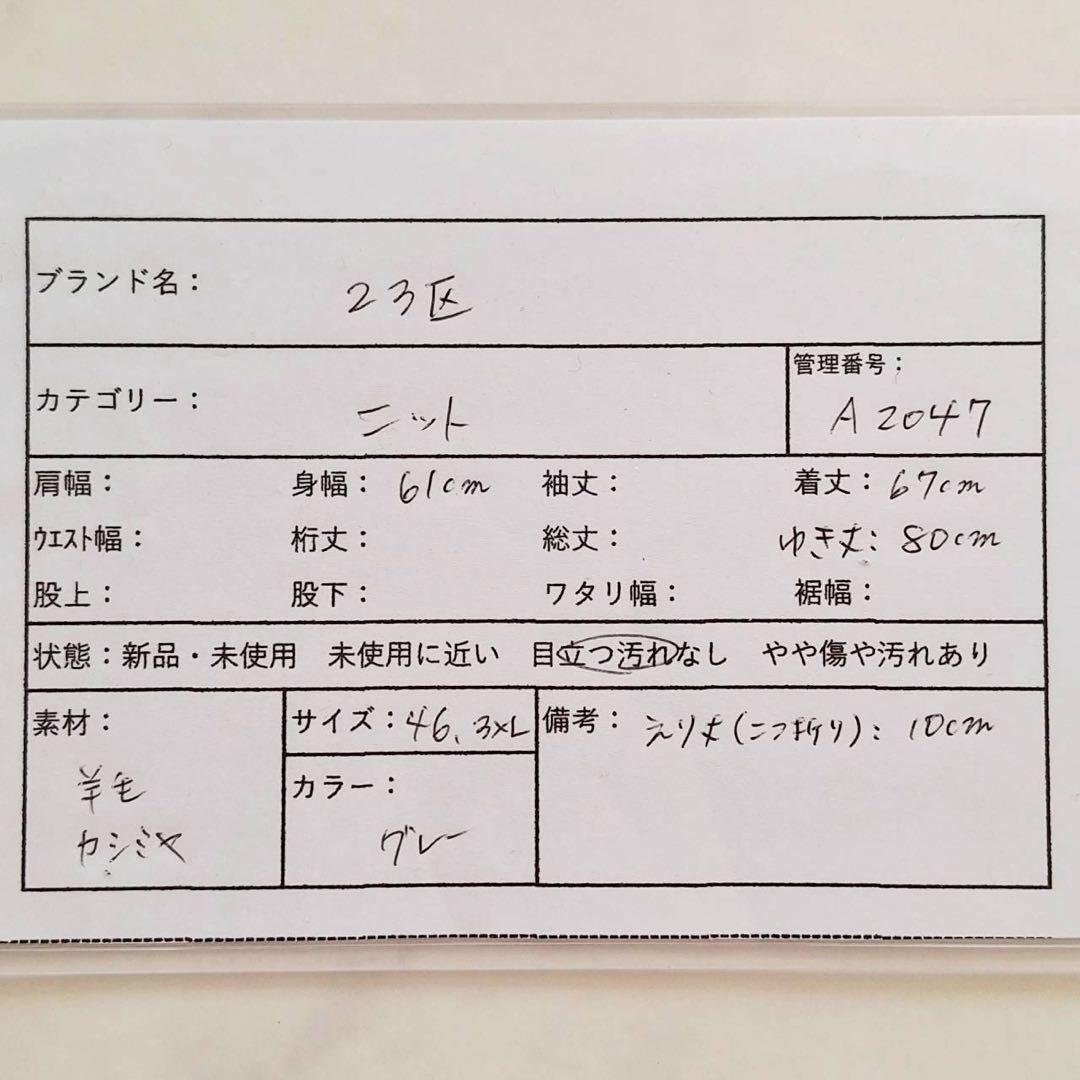 ブランド名： 23区
カテゴリー： ニット
管理番号： A2047
肩幅： 身幅： 61cm 袖丈： 着丈： 67cm
ウエスト幅： 裄丈： 総丈： ゆき丈： 80cm
股上： 股下： ワタリ幅： 裾幅：
状態：新品・未使用 未使用に近い 目立つ汚れなし やや傷や汚れあり
素材：
羊毛
カシミヤ
サイズ：46、3XL
カラー：
グレー
備考： えり丈(二つ折り)： 10cm